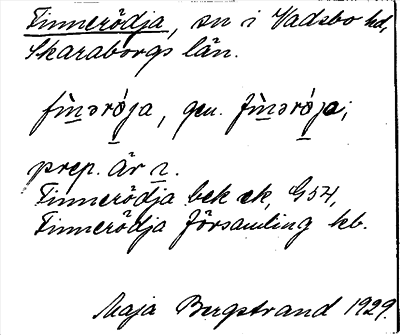 Finnerödja, sn i Vadsbo hd,
Skaraborgs län.
fìnərǿja, gen. fìnərǿja;
prep. är ı.
Finnerödja bek ek, G54,
Finnerödja församling kb.
Maja Bergstrand 1929.